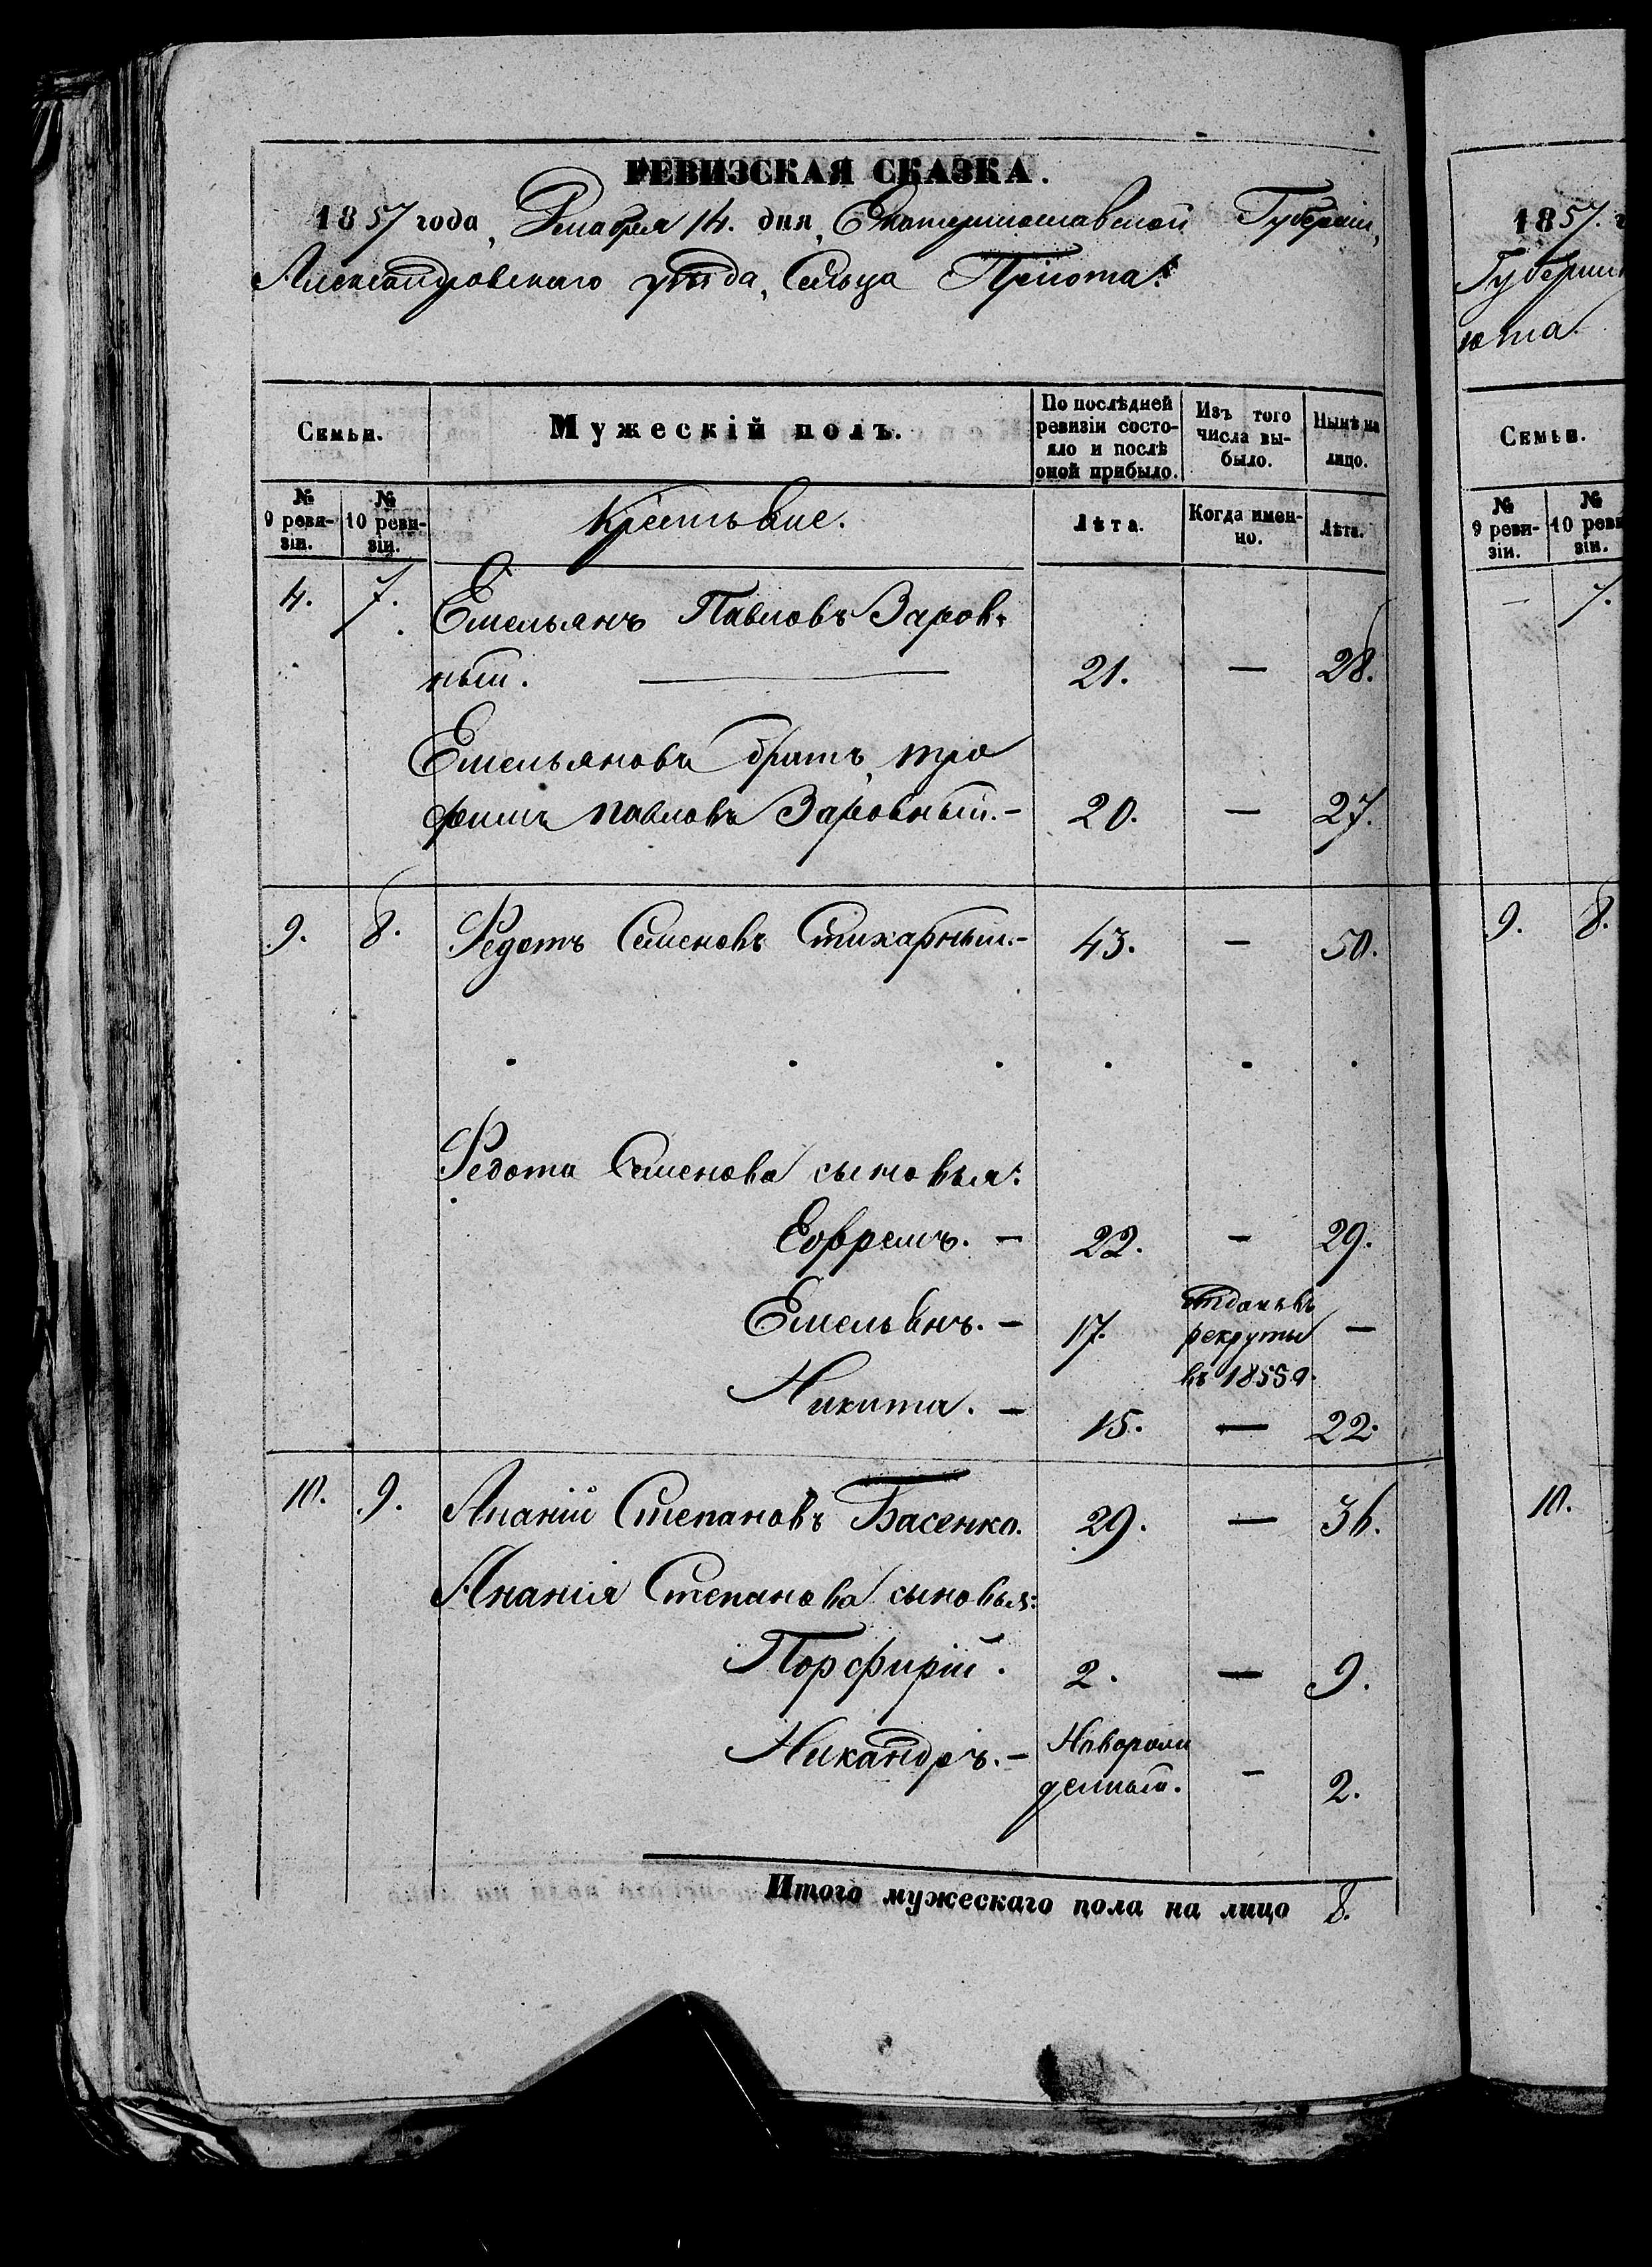 РЕВИЗСКАЯ СКАЗКА.
1857 года, Декабря 14. дня, Екатеринославской Губерніи,
Александровскаго уѣзда, Сельца Пріюта.
Семьи.
Мужескій полъ.
По послѣдней ревизіи состояло и послѣ оной прибыло.
Изъ того числа выбыло.
Нынѣ на лицо.
№ 9 ревизіи.
№ 10 ревизіи.
Крестьяне.
Лѣта.
Когда именно.
Лѣта.
4. 7. Емельянъ Павловъ Заров-
ный. 21. — 28.
Емельяновъ братъ, Тро
фимъ Павловъ Заровный. - 20. — 27.
9. 8. Федотъ Семеновъ Стихарный. - 43. — 50.
Федота Семенова сыновья:
Ефремъ. — 22. — 29.
Емельянъ. — 17. отданъ въ рекруты въ 1855 г. —
Никита. — 15. — 22.
10. 9. Ананій Степановъ Басенко. 29. — 36.
Ананія Степанова сыновья:
Порфирій. 2. — 9.
Никандръ. — Новорож
денный. — 2.
Итого мужескаго пола на лицо 8.
1857. г
Губерні
юта.
Семьи.
№ 9 ревизіи.
№ 10 реви
зіи.
— 7.
9. 8.
10.